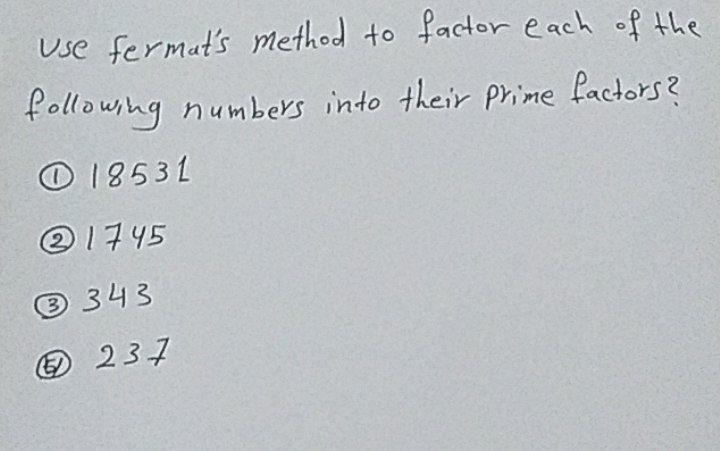 Use fermat's method to factor each of the
following numbers into their prime factors?
① 18531
② 1745
③ 343
④ 237